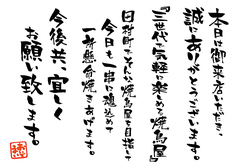 本日は御来店いただき、
誠にありがとうございます。
『三世代で気軽に楽める焼鳥屋』
田村町でそんな焼鳥屋を目指して
今日も一串に魂込めて
一所懸命焼きあげます。
今後共、宜しく
お願い致します。